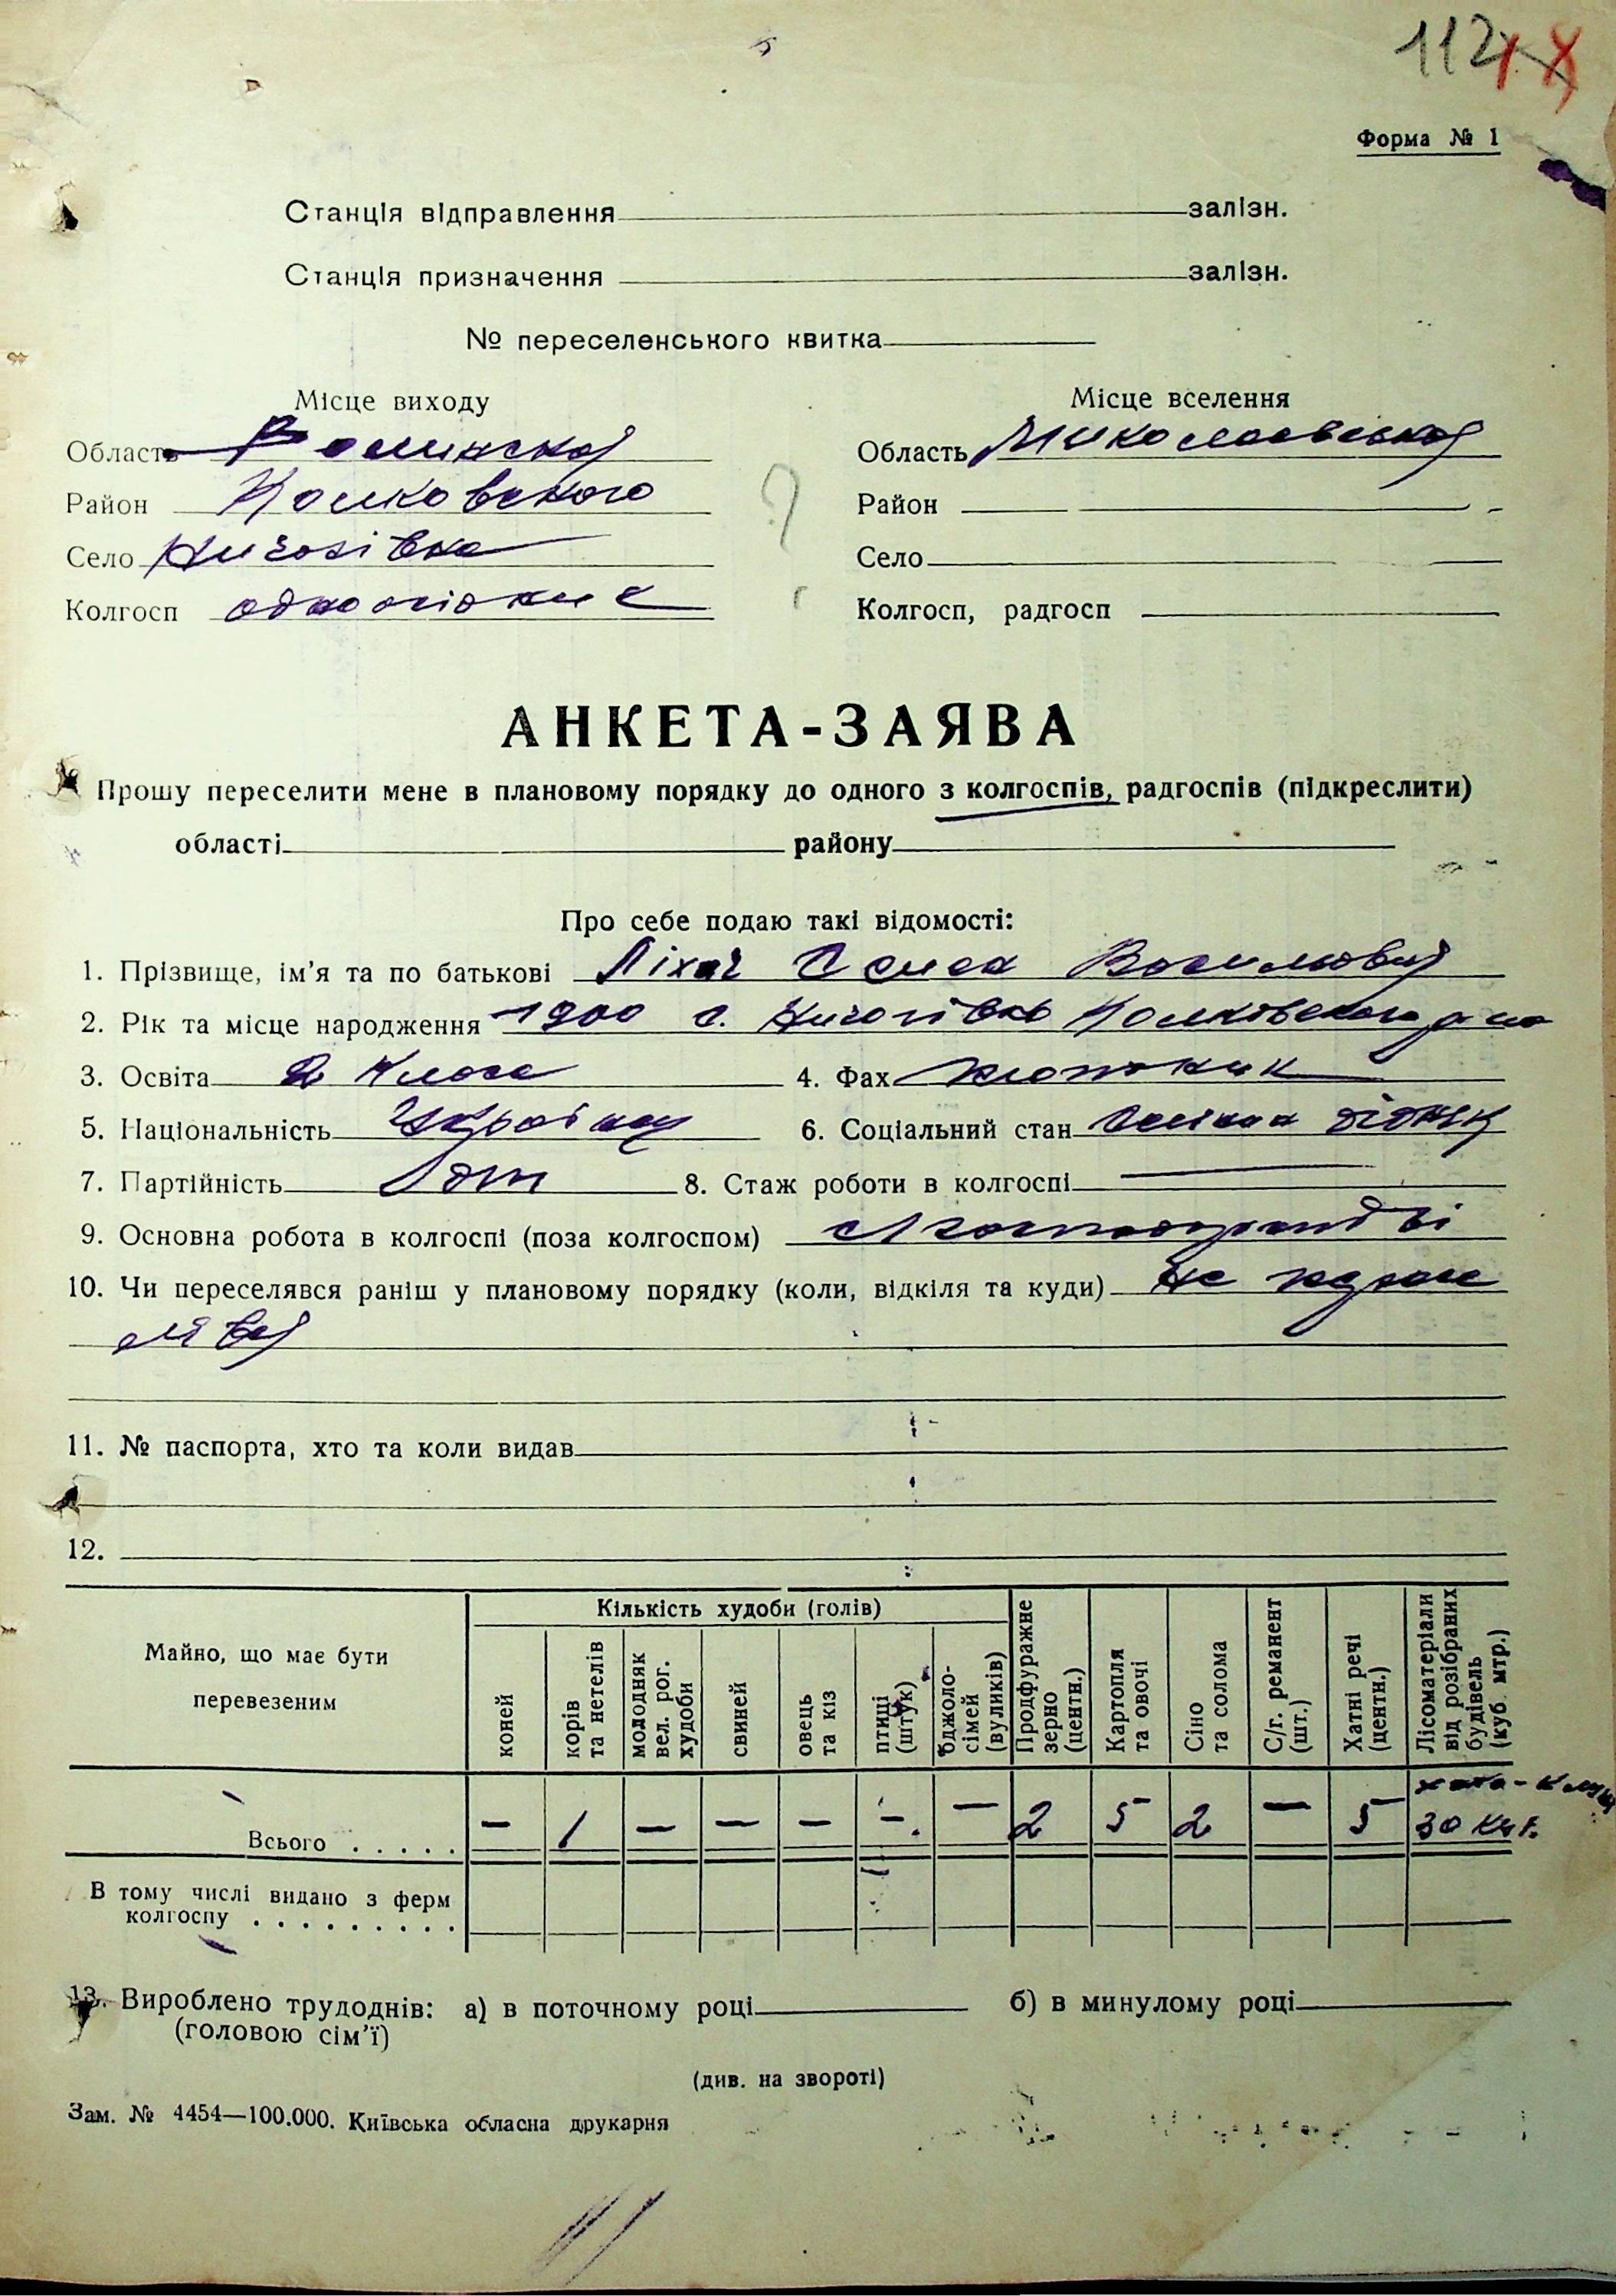 112
Форма № 1
Станція відправлення залізн.
Станція призначення залізн.
№ переселенського квитка
Місце виходу Місце вселення
Область Волинской Область Миколаевської
Район Колковського Район
Село Ничогівка Село
Колгосп одноосібник Колгосп, радгосп
АНКЕТА-ЗАЯВА
Прошу переселити мене в плановому порядку до одного з колгоспів, радгоспів (підкреслити)
області району
Про себе подаю такі відомості:
1. Прізвище, ім’я та по батькові Ліхач Василювич
2. Рік та місце народження 1900 с. Ничогівка Колківського р-на
3. Освіта 2 класа 4. Фах
5. Національність Українец 6. Соціальний стан
7. Партійність 8. Стаж роботи в колгоспі
9. Основна робота в колгоспі (поза колгоспом)
10. Чи переселявся раніш у плановому порядку (коли, відкіля та куди) не
11. № паспорта, хто та коли видав
12.
Майно, що має бути перевезеним Кількість худоби (голів)
коней корів та нетелів молодняк вел. рог. худоби свиней овець та кіз птиці (штук) бджоло-сімей (вуликів) Продфуражне зерно (центн.) Картопля та овочі Сіно та солома С/г. реманент (шт.) Хатні речі (центн.) Лісоматеріали від розібраних будівель (куб. мтр.)
хата -
Всього . . . . . — 1 — — — — — 2 5 2 — 5 30
В тому числі видано з ферм
колгоспу . . . . . . . . .
13. Вироблено трудоднів: а) в поточному році б) в минулому році
(головою сім’ї)
(див. на звороті)
Зам. № 4454—100.000. Київська обласна друкарня